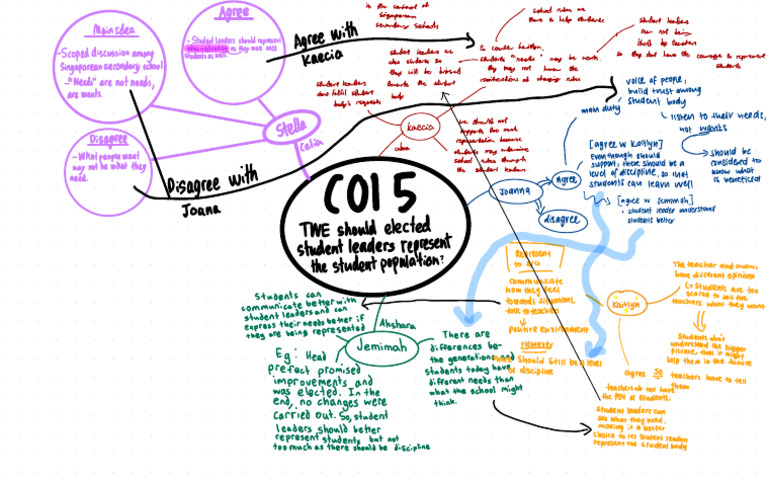 Main idea
-Scoped discussion among
Singaporean secondary school
-"Needs" are not needs,
are wants.
Agree
- Student Leaders should represent
administration as they more once
students as well.
Disagree
- What people want
may not be what they
need.
Stella
Celia
Agree with
Kaecia
Disagree with
Joana
COI 5
TWE should elected
student leaders represent
the student population?
in the context of
Singaporean
secondary schools
school rules are
there to help students
student leaders
may not be
liked by teachers
so they dont have the courage to represent
students
student leaders are
also students so
they will be biased
towards the student
body
students "needs" may be wants,
they may not know the
ramifications of changing rules
student leaders
cant fulfil student
body's requests
Kaecia
we should not
support too much
representation because
students may undermine
school rules through
the student leaders
Joanna
agree
disagree
main duty
voice of people,
build trust among
student body
listen to their needs,
not wants
should be
considered to
know what
is beneficial
[agree w Kaitlyn]
Even though should
support, there should be a
level of discipline, so that
students can learn well
[agree w Jemimah]
• student leader understand
students better
Represent
to SLG
communicate
how they feel
towards situations,
talk to teachers
positive environment
However
Should still be a level
of discipline
Kaitlyn
The teacher and students
have different opinions
(→ Students are too
scared to ask the
teachers what they want
Students don't
understand the bigger
picture, that it might
help them in the future
agree SO teachers have to tell
them
teachers do not have
the POV of students.
Student leaders can
see what they need,
making it a better
choice to let student leaders
represent the student body
Students can
communicate better with
student leaders and can
express their needs better if
they are being represented
Akshara
Jemimah
There are
differences be-
the generations and
students today have
different needs than
what the school might
think.
Eg: Head
prefect promised
improvements and
was elected. In the
end, no changes were
carried out. So, student
leaders should better
represent students but not
too much as there should be discipline